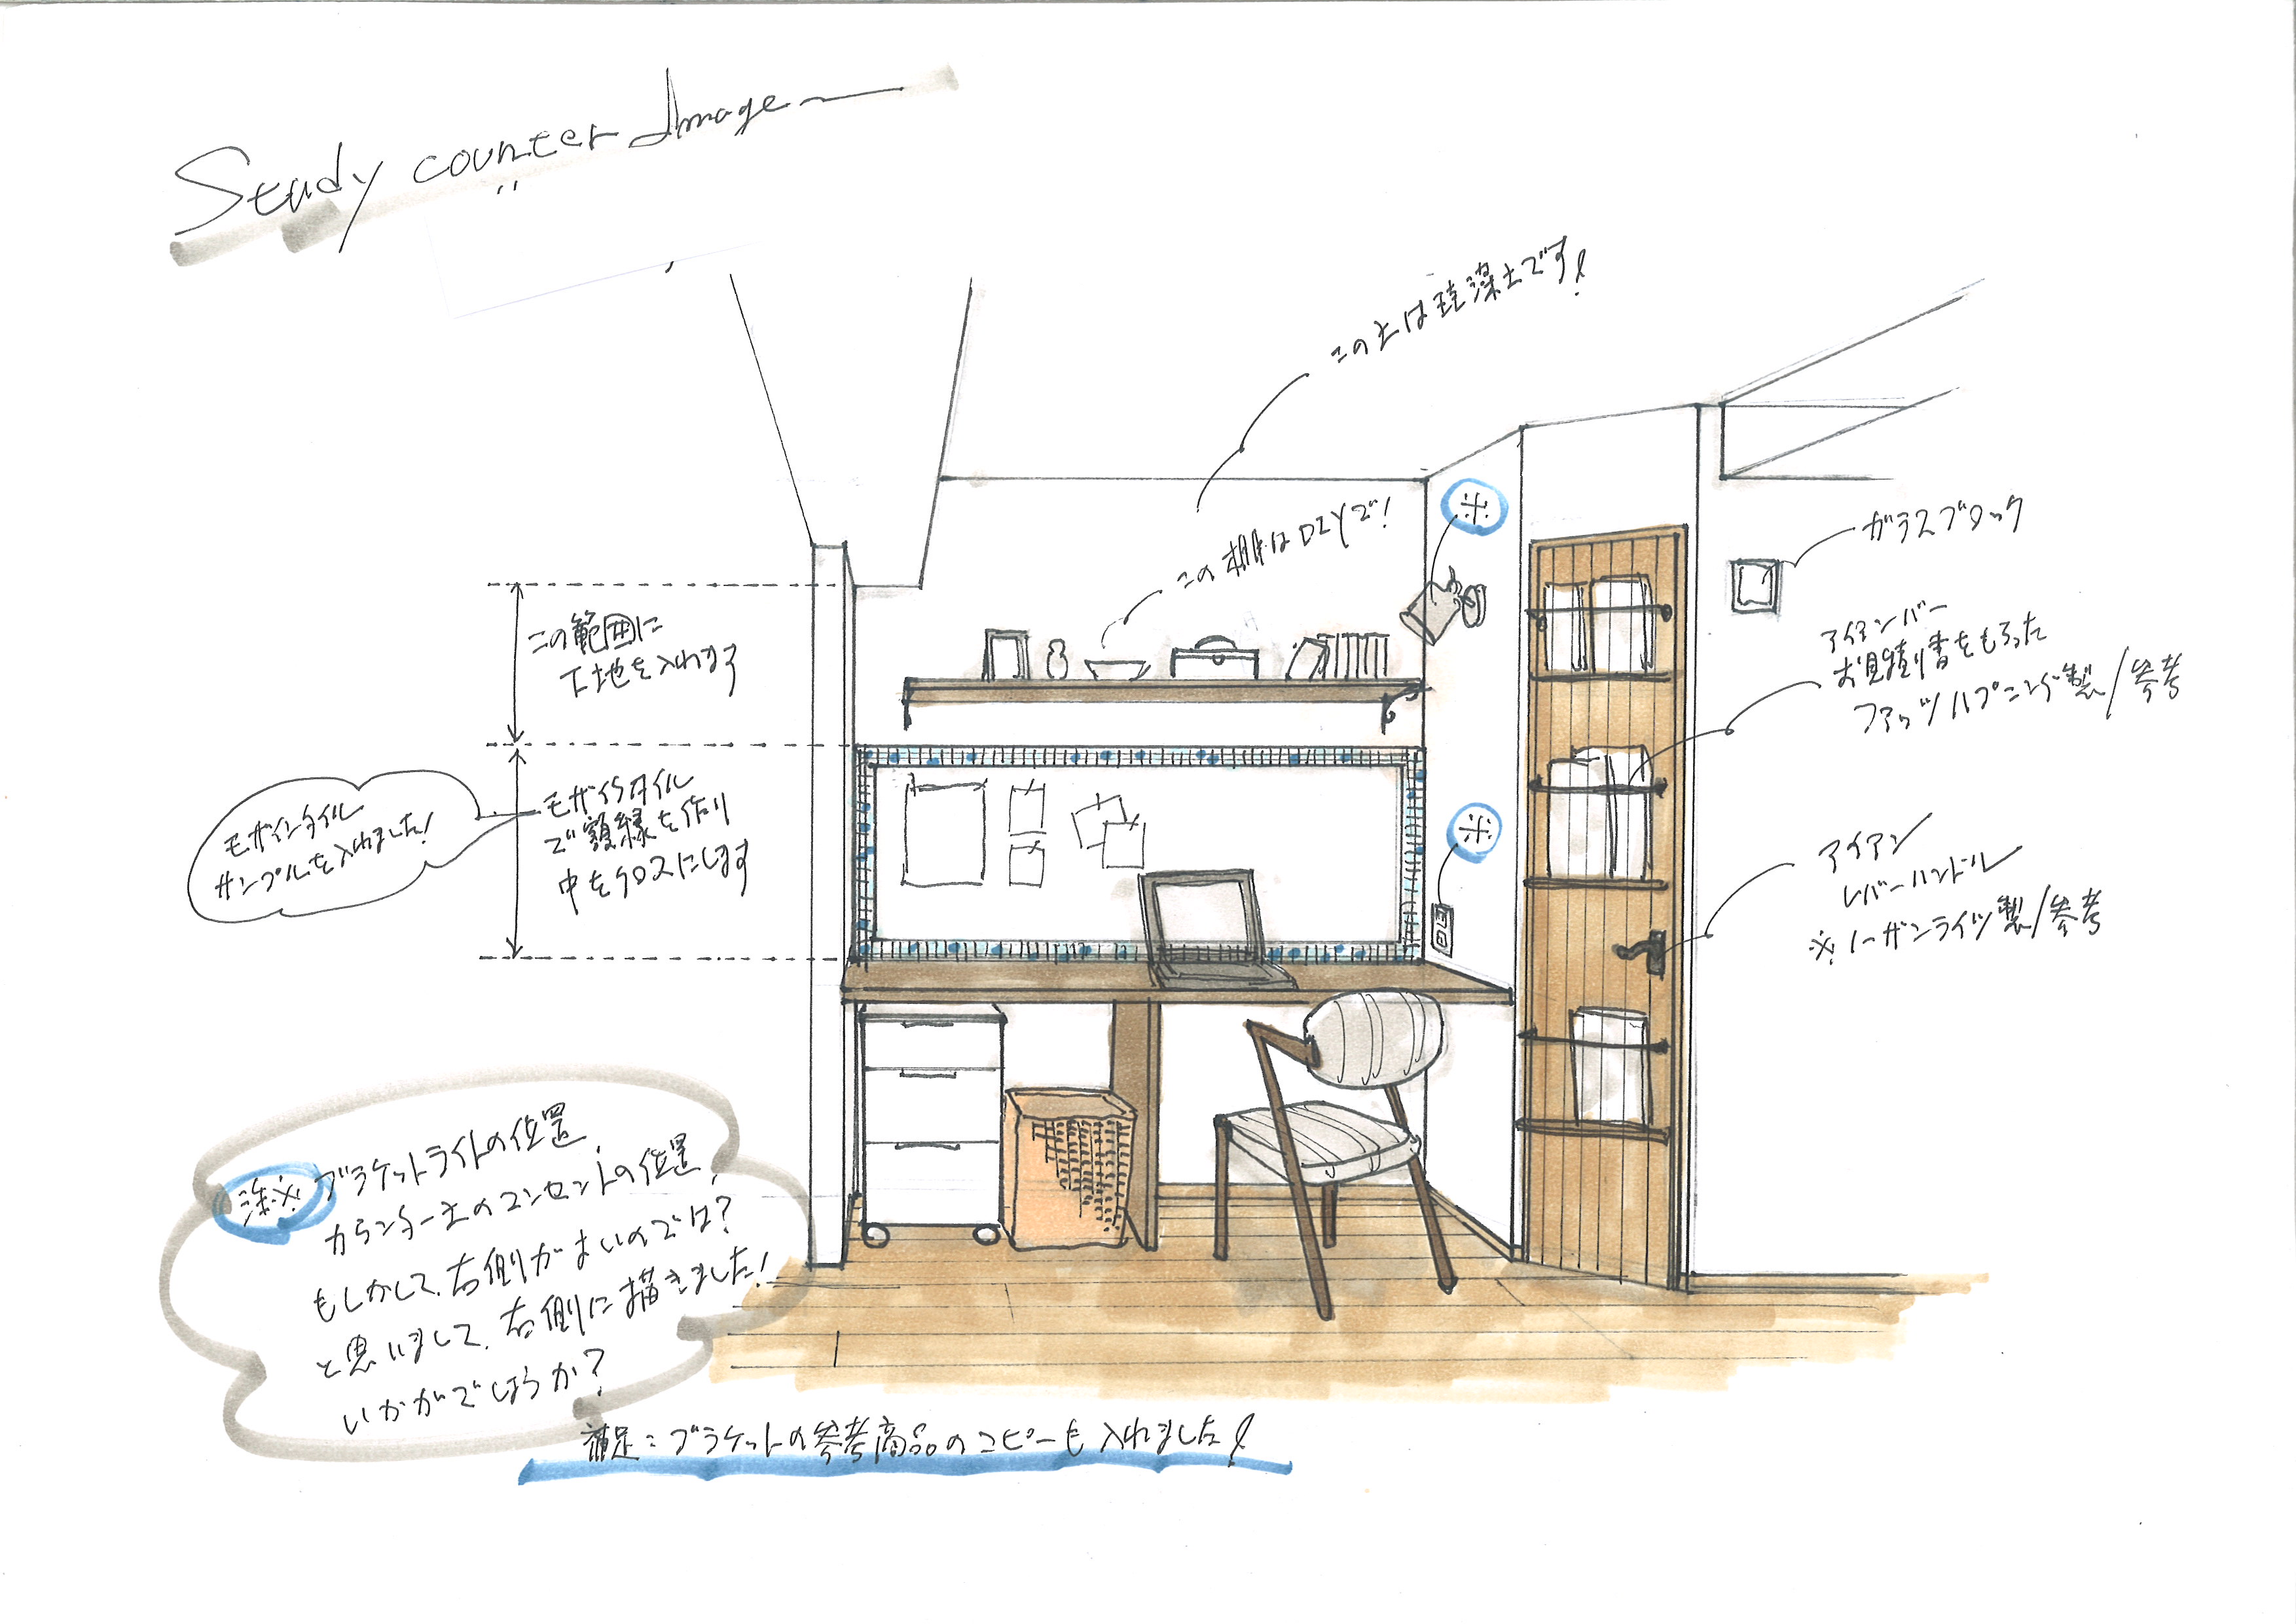 Study counter Image
この上は珪藻土です!
この棚はDIYで!
ガラスブロック
アイアンバー
お見積り書をもらった
ファッツハプニング製/参考
アイアン
レバーハンドル
※ノーザンライツ製/参考
この範囲に
下地を入れます
モザイクタイル
で額縁を作り
中をクロスにします
モザイクタイル
サンプルを入れました!
※
※
※ ブラケットライトの位置、
カウンター上のコンセントの位置、
もしかして、右側がよいのでは?
と思いまして、右側に描きました!
いかがでしょうか?
補足:ブラケットの参考商品のコピーも入れました!